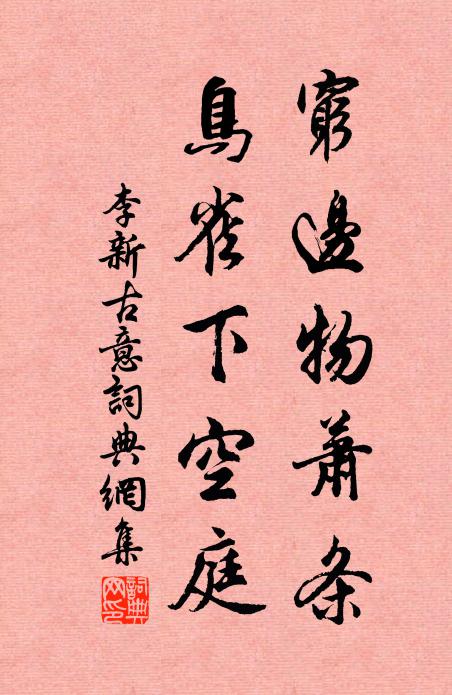 窮邊物蕭条
鳥雀下空庭
李新古意詞典網集
詞典网印